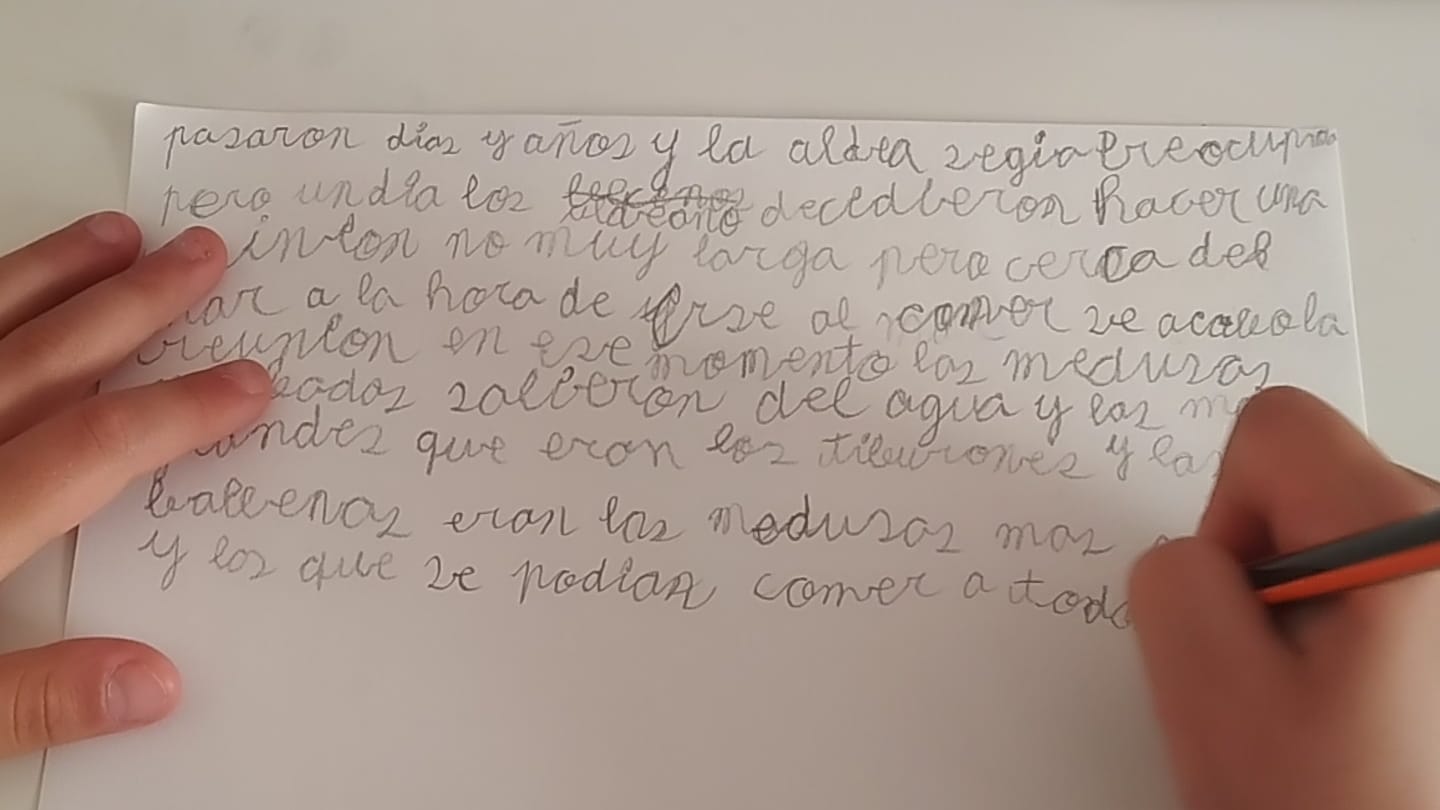 pasaron dias y años y la aldea segia preocupa
pero un dia los aldeano decidieron hacer una
inion no muy larga pero cerca del
mar a la hora de irse al comer se acavo la
reunion en ese momento las medusas
salieron del agua y los
grandes que eran los tiburones y las
ballenas eran las medusas mas
y los que se podian comer a todo